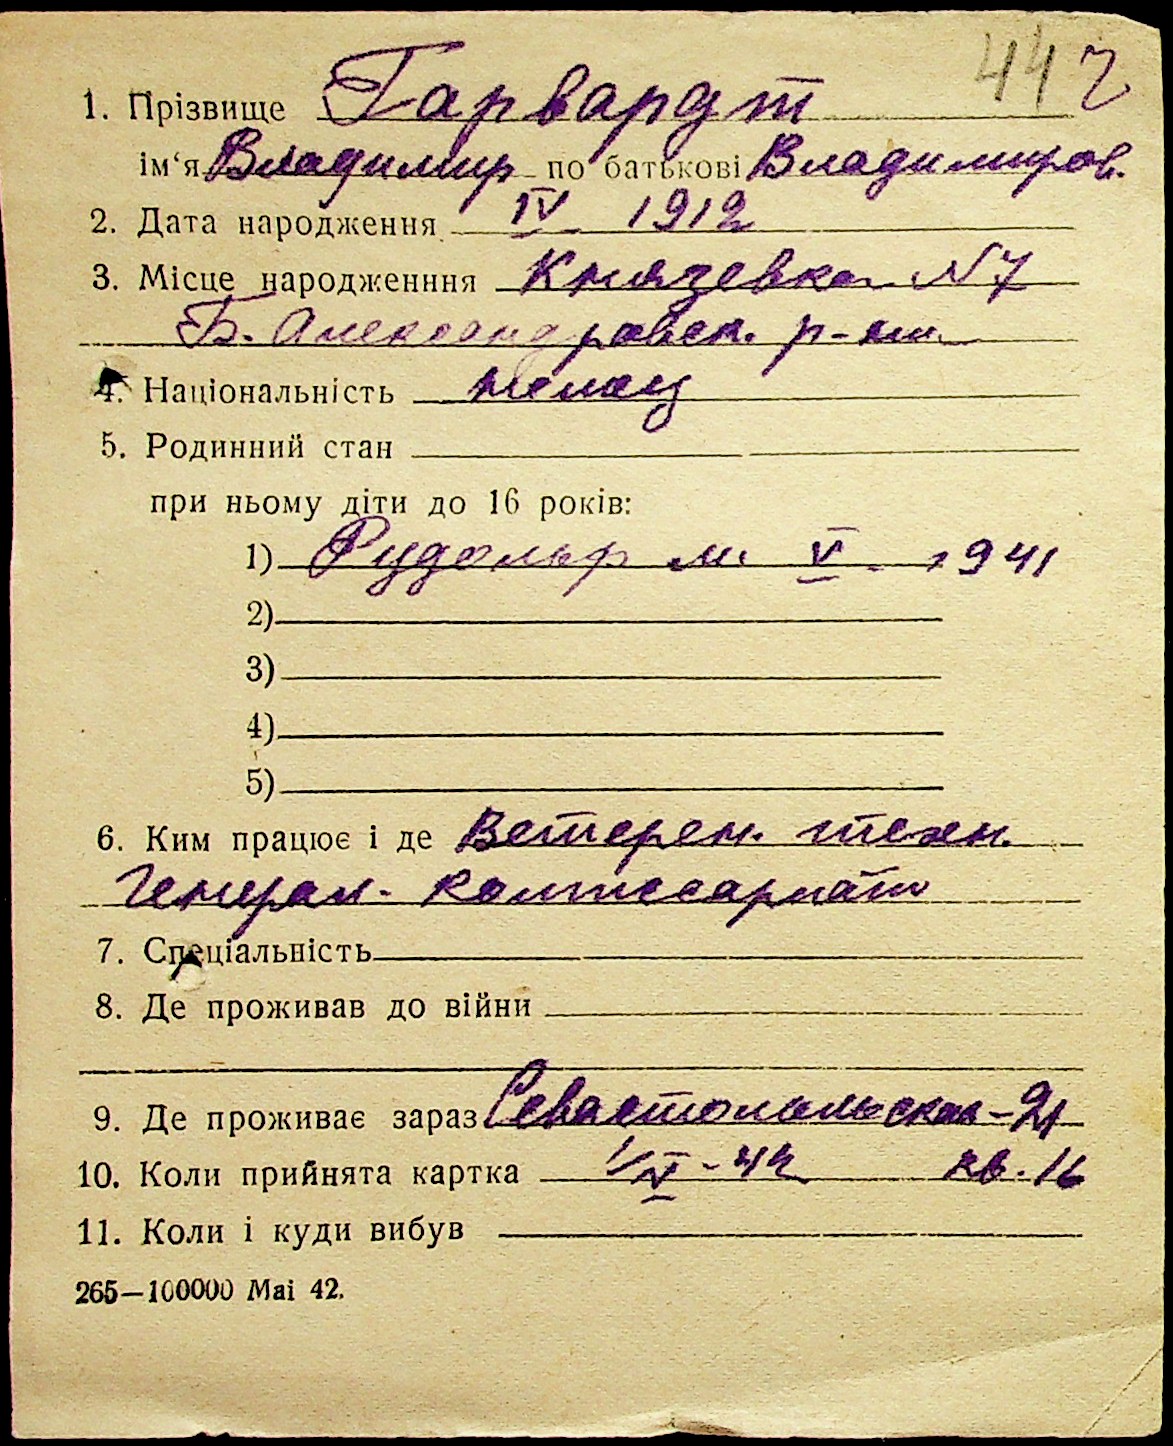 44 г
1. Прізвище Гарвардт
ім‘я Владимир по батькові Владимиров.
2. Дата народження IV 1912
3. Місце народженння Князевка N 7
Б. Александровск. р-на
4. Національність немец
5. Родинний стан
при ньому діти до 16 років:
1) Рудольф м. V. 1941
2)
3)
4)
5)
6. Ким працює і де Ветерен. техн.
Генерал. комиссариат
7. Спеціальність
8. Де проживав до війни
9. Де проживає зараз Севастопольская-21
10. Коли прийнята картка 1/V-42 кв. 16
11. Коли і куди вибув
265—100000 Mai 42.